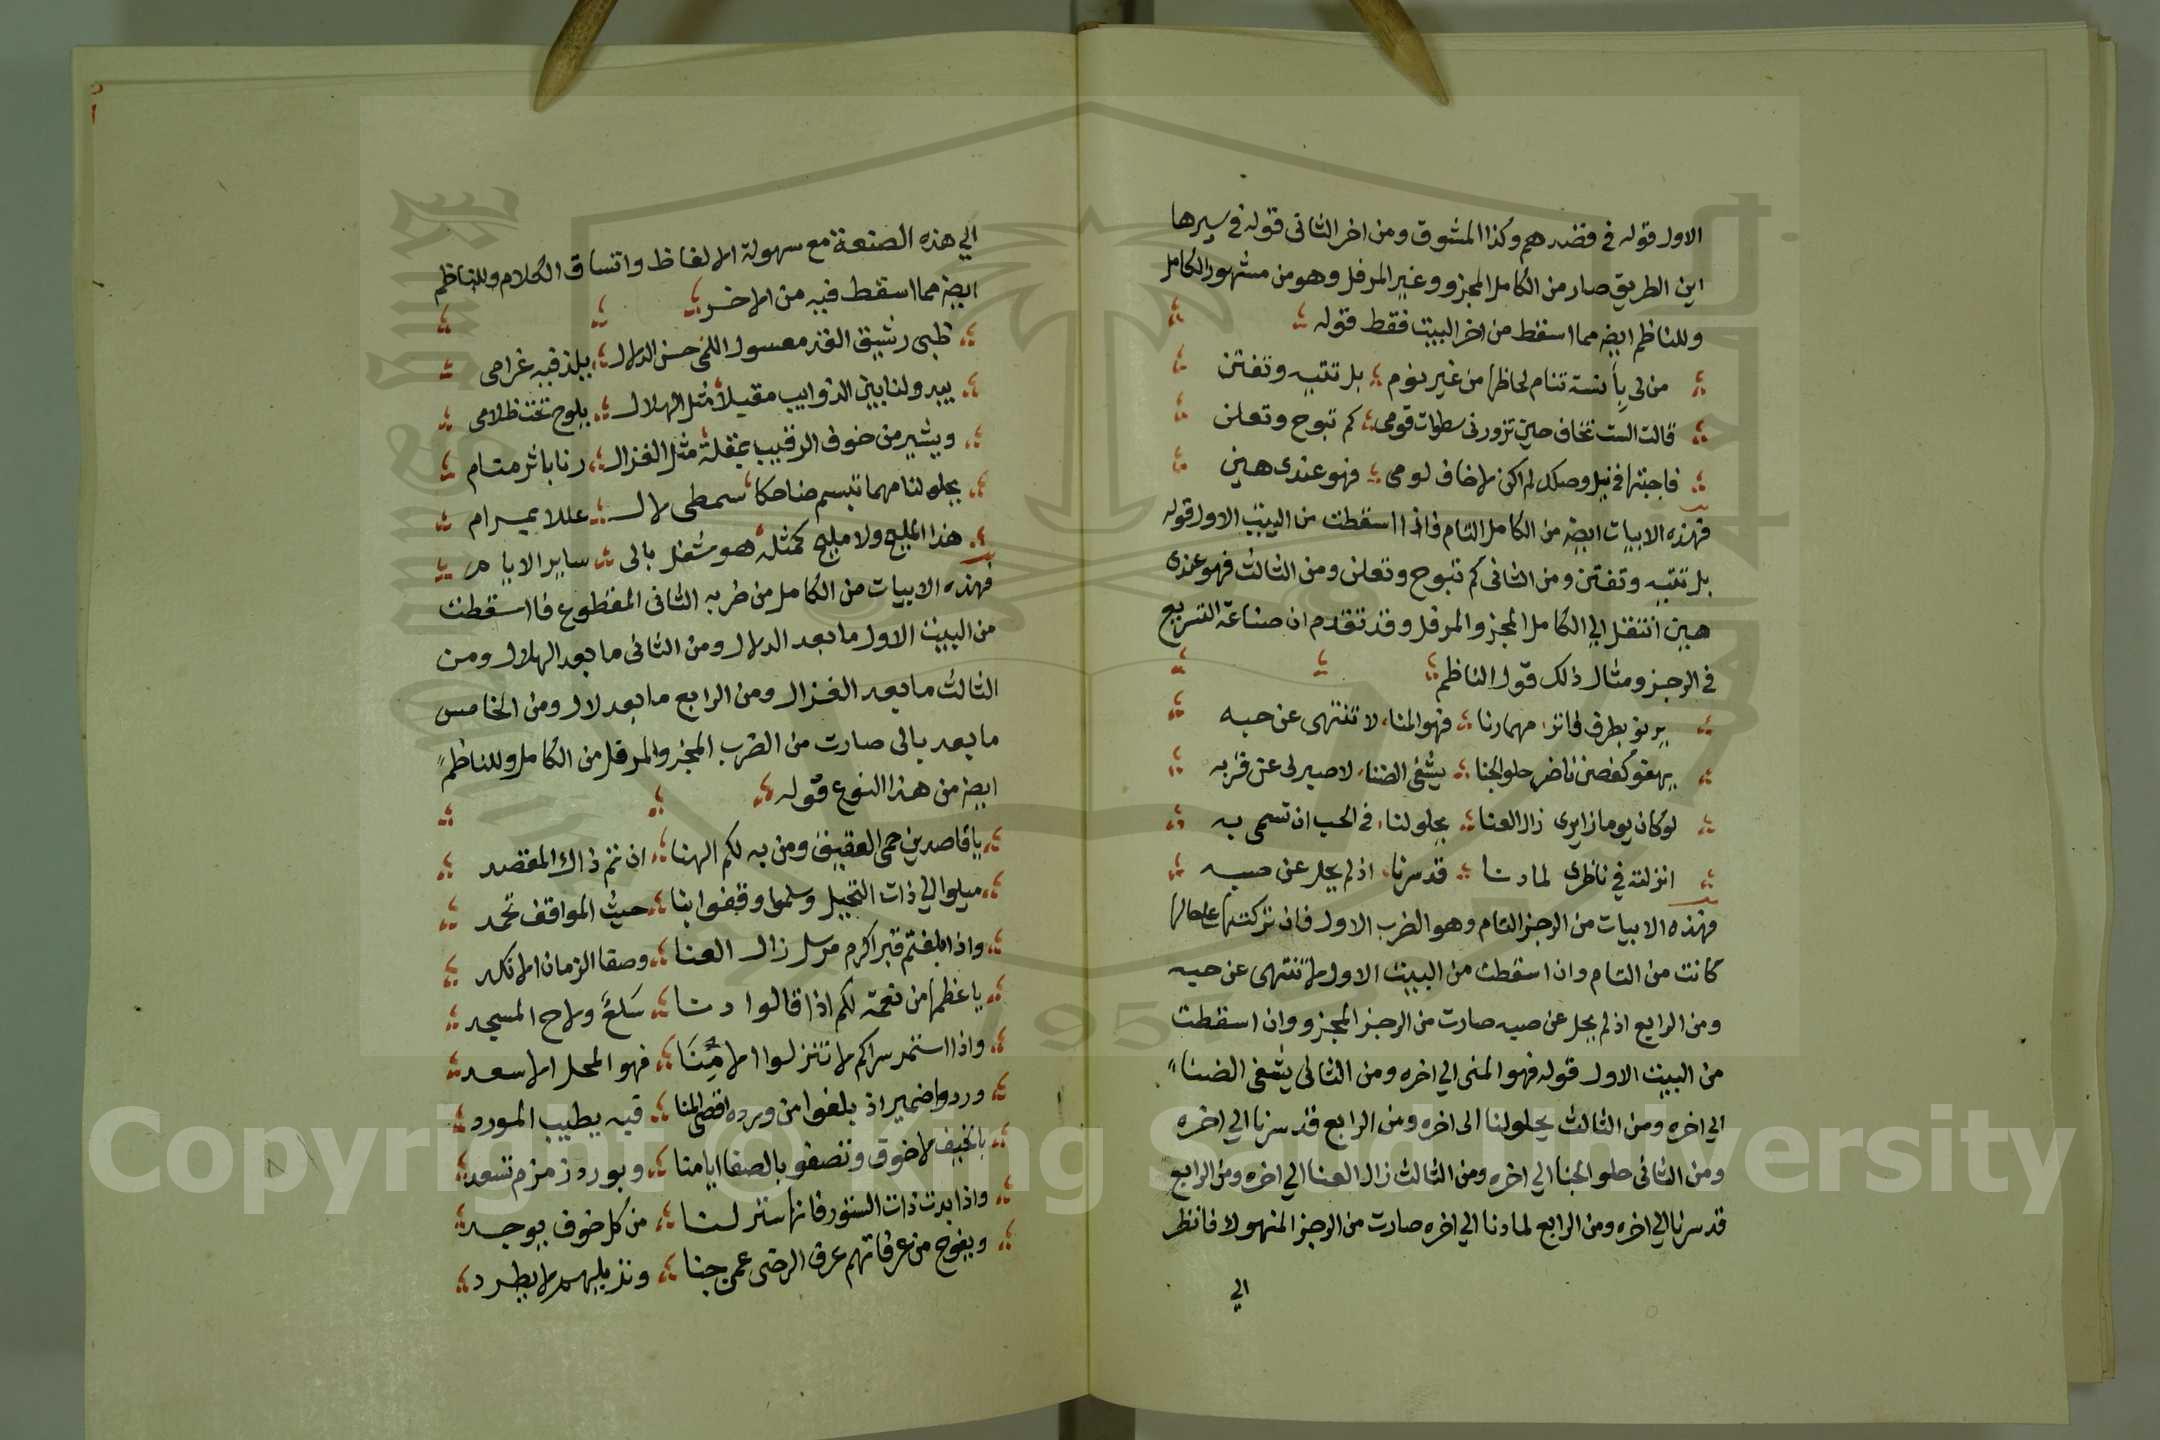 الاول قوله في قصدهم وكذا المشوق ومن اخر الثاني قوله في سيرها
اين الطريق صار من الكامل المجزو وغير المرفل وهو من مشهور الكامل
وللناظم ايضه مما اسقط من اخر البيت فقط قوله
من لي بآنسة تنام لحاظها من غير نوم بل تتيه وتفتن
قالت الست تخاف حين تزورني سطوات قومي كم تبوح وتعلن
فاجبتها في نيل وصلك لم اكن لاخاف لومي فهو عندي هين
فهذه الابيات ايضه من الكامل التام فاذا اسقطت من البيت الاول قوله
بل تتيه وتفتن ومن الثاني كم تبوح وتعلن ومن الثالث فهو عندي
هين انتقل الي الكامل المجزو المرفل وقد تقدم ان صناعة التشريع
في الرجز ومثال ذلك قول الناظم
يرنو بطرف فاتر مهما رنا فهو المنا لا تنتهي عن حبه
يهفو كغصن ناضر حلو الجنا يشفي الضنا لا صبر لي عن قربه
لو كان يوما زايري زال العنا يحلو لنا في الحب ان تسمي به
انزلته في ناظري لما دنا قد سرنا اذ لم يحل عن صبه
فهذه الابيات من الرجز التام وهو الضرب الاول فان تركتها على حالها
كانت من التام وان اسقطت من البيت الاول لا تنتهي عن حبه
ومن الرابع اذ لم يحل عن صبه صارت من الرجز المجزو وان اسقطت
من البيت الاول قوله فهو المنى الي اخره ومن الثاني يشفي الضنا
الي اخره ومن الثالث يحلو لنا الى اخره ومن الرابع قد سرنا الي اخره
ومن الثاني حلو الجنا الي اخره ومن الثالث زال العنا الي اخره ومن الرابع
قد سرنا الي اخره ومن الرابع لما دنا الي اخره صارت من الرجز المنهوك فانظر
الي
الي هذه الصنعة مع سهولة الالفاظ واتساق الكلام وللناظم
ايضه مما اسقط فيه من الاخر
ظبي رشيق القد معسول اللمى حسن الدلال يلذ فيه غرامي
يبدو لنا بين الذوايب مقبلا مثل الهلال يلوح تحت ظلامي
ويشير من خوف الرقيب بمقلة مثل الغزال رنا باثر
يجلو لنا مهما تبسم ضاحكا سمطي لال عللا
هذا المليح ولا مليح كمثله هو شغل بالي ساير الايام
فهذه الابيات من الكامل من ضربه الثاني المقطوع فااسقطت
من البيت الاول ما بعد الدلال ومن الثاني ما بعد الهلال ومن
الثالث ما بعد الغزال ومن الرابع ما بعد لال ومن الخامس
ما بعد بالي صارت من الضرب المجزو المرفل من الكامل وللناظم
ايضه من هذا النوع قوله
يا قاصدين حمى العقيق ومن به لكم الهنا ان تم ذاك المقصد
ميلوا الي ذات النخيل وسلموا وقفوا بنا حيث المواقف تحمد
واذا بلغتم قبر اكرم مرسل زال العنا وصفا الزمان الانكد
يا عظمها من نعمة لكم اذا قالوا دنا سلع ولاح المسجد
واذا استمر سراكم لا تنزلوا الا منا فهو المحل الاسعد
وردوا اذ بلغوا من ورده اقصي المنا فيه يطيب المورد
بالخيف لا خوف وتصفو بالصفا ايامنا وبورد زمزم تسعد
واذا بدت ذات الستور فانها ستر لنا من كل خوف يوجد
ويفوح من عرفاتهم عرف الرضى عمن جنا
Copyright © King Saud University
1957